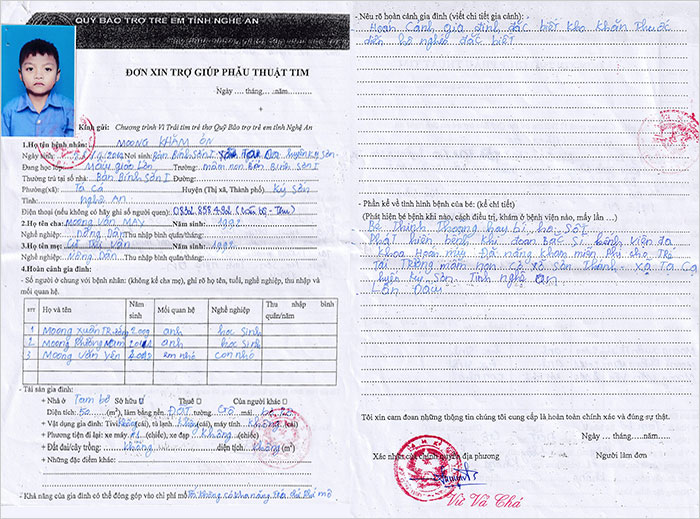 QUỸ BẢO TRỢ TRẺ EM TỈNH NGHỆ AN
ĐƠN XIN TRỢ GIÚP PHẪU THUẬT TIM
Ngày .... tháng... .năm.........
Kính gửi: Chương trình Vì Trái tim trẻ thơ Quỹ Bảo trợ trẻ em tỉnh Nghệ An
1.Họ tên bệnh nhân: MOONG KHĂM ÒN
Ngày sinh: Nơi sinh: Bản Bình Sơn I xã Tà Cạ huyện Kỳ Sơn
Đang học lớp: Mẫu giáo Lớn Trường: mầm non Bản Bình Sơn I
Thường trú tại số nhà: Bản Bình Sơn I Đường:
Phường(xã): Tà Cạ Huyện (Thị xã, Thành phố). Kỳ Sơn
Tỉnh: Nghệ AN
Điện thoại (nếu không có hãy ghi số người quen):
2.Họ tên cha: Moong Văn MAY Năm sinh: 1992
Nghề nghiệp: Nông Dân Thu nhập bình quân/tháng:
3.Họ tên mẹ: Năm sinh: 1992
Nghề nghiệp: Nông Dân Thu nhập bình quân/tháng:
4.Hoàn cảnh gia đình:
- Số người ở chung với bệnh nhân: (không kể cha mẹ), ghi rõ họ tên, tuổi, nghề nghiệp, thu nhập và
mối quan hệ.
STT Họ và tên Năm sinh Mối quan hệ Nghề nghiệp Thu nhập bình quân/năm
1 Moong Xuân 2009 anh học sinh
2 Moong anh học sinh
3 Moong Văn Vên em nhỏ còn nhỏ
- Tài sản gia đình:
+ Nhà ở Tạm bợ Sở hữu Thuê Của người khác
Diện tích: 50 (m²), làm bằng nền ĐẤT tường Gỗ mái
+ Vật dụng gia đình: Tivi Không (cái), tủ lạnh (cái), máy tính Không (cái)
+ Phương tiện đi lại: xe máy (chiếc), xe đạp Không (chiếc)
+ Đất đai/cây trồng: không diện tích không (m²)
+ Những đặc điểm khác:
- Khả năng của gia đình có thể đóng góp vào chi phí mổ
- Nêu rõ hoàn cảnh gia đình (viết chi tiết gia cảnh):
Hoàn Cảnh gia đình đặc biệt khó khăn Thuộc
diện hộ nghèo đặc biệt
- Phần kể về tình hình bệnh của bé: (kể chi tiết)
(Phát hiện bé bệnh khi nào, cách điều trị, khám ở bệnh viện nào, mấy lần ...)
Bé Thỉnh Thoảng hay bị ho Sốt
Phát hiện bệnh khi đoàn Bác Sĩ bệnh viện đa
khoa khám miễn Phí cho Trẻ
Tại Trường mầm non xã Tà Cạ
huyện Kỳ Sơn Tỉnh nghệ an
Lần Đầu
Tôi xin cam đoan những thông tin chúng tôi cung cấp là hoàn toàn chính xác và đúng sự thật.
Ngày .... tháng......năm.....
Xác nhận của chính quyền địa phương Người làm đơn
Vừ Vả Chá